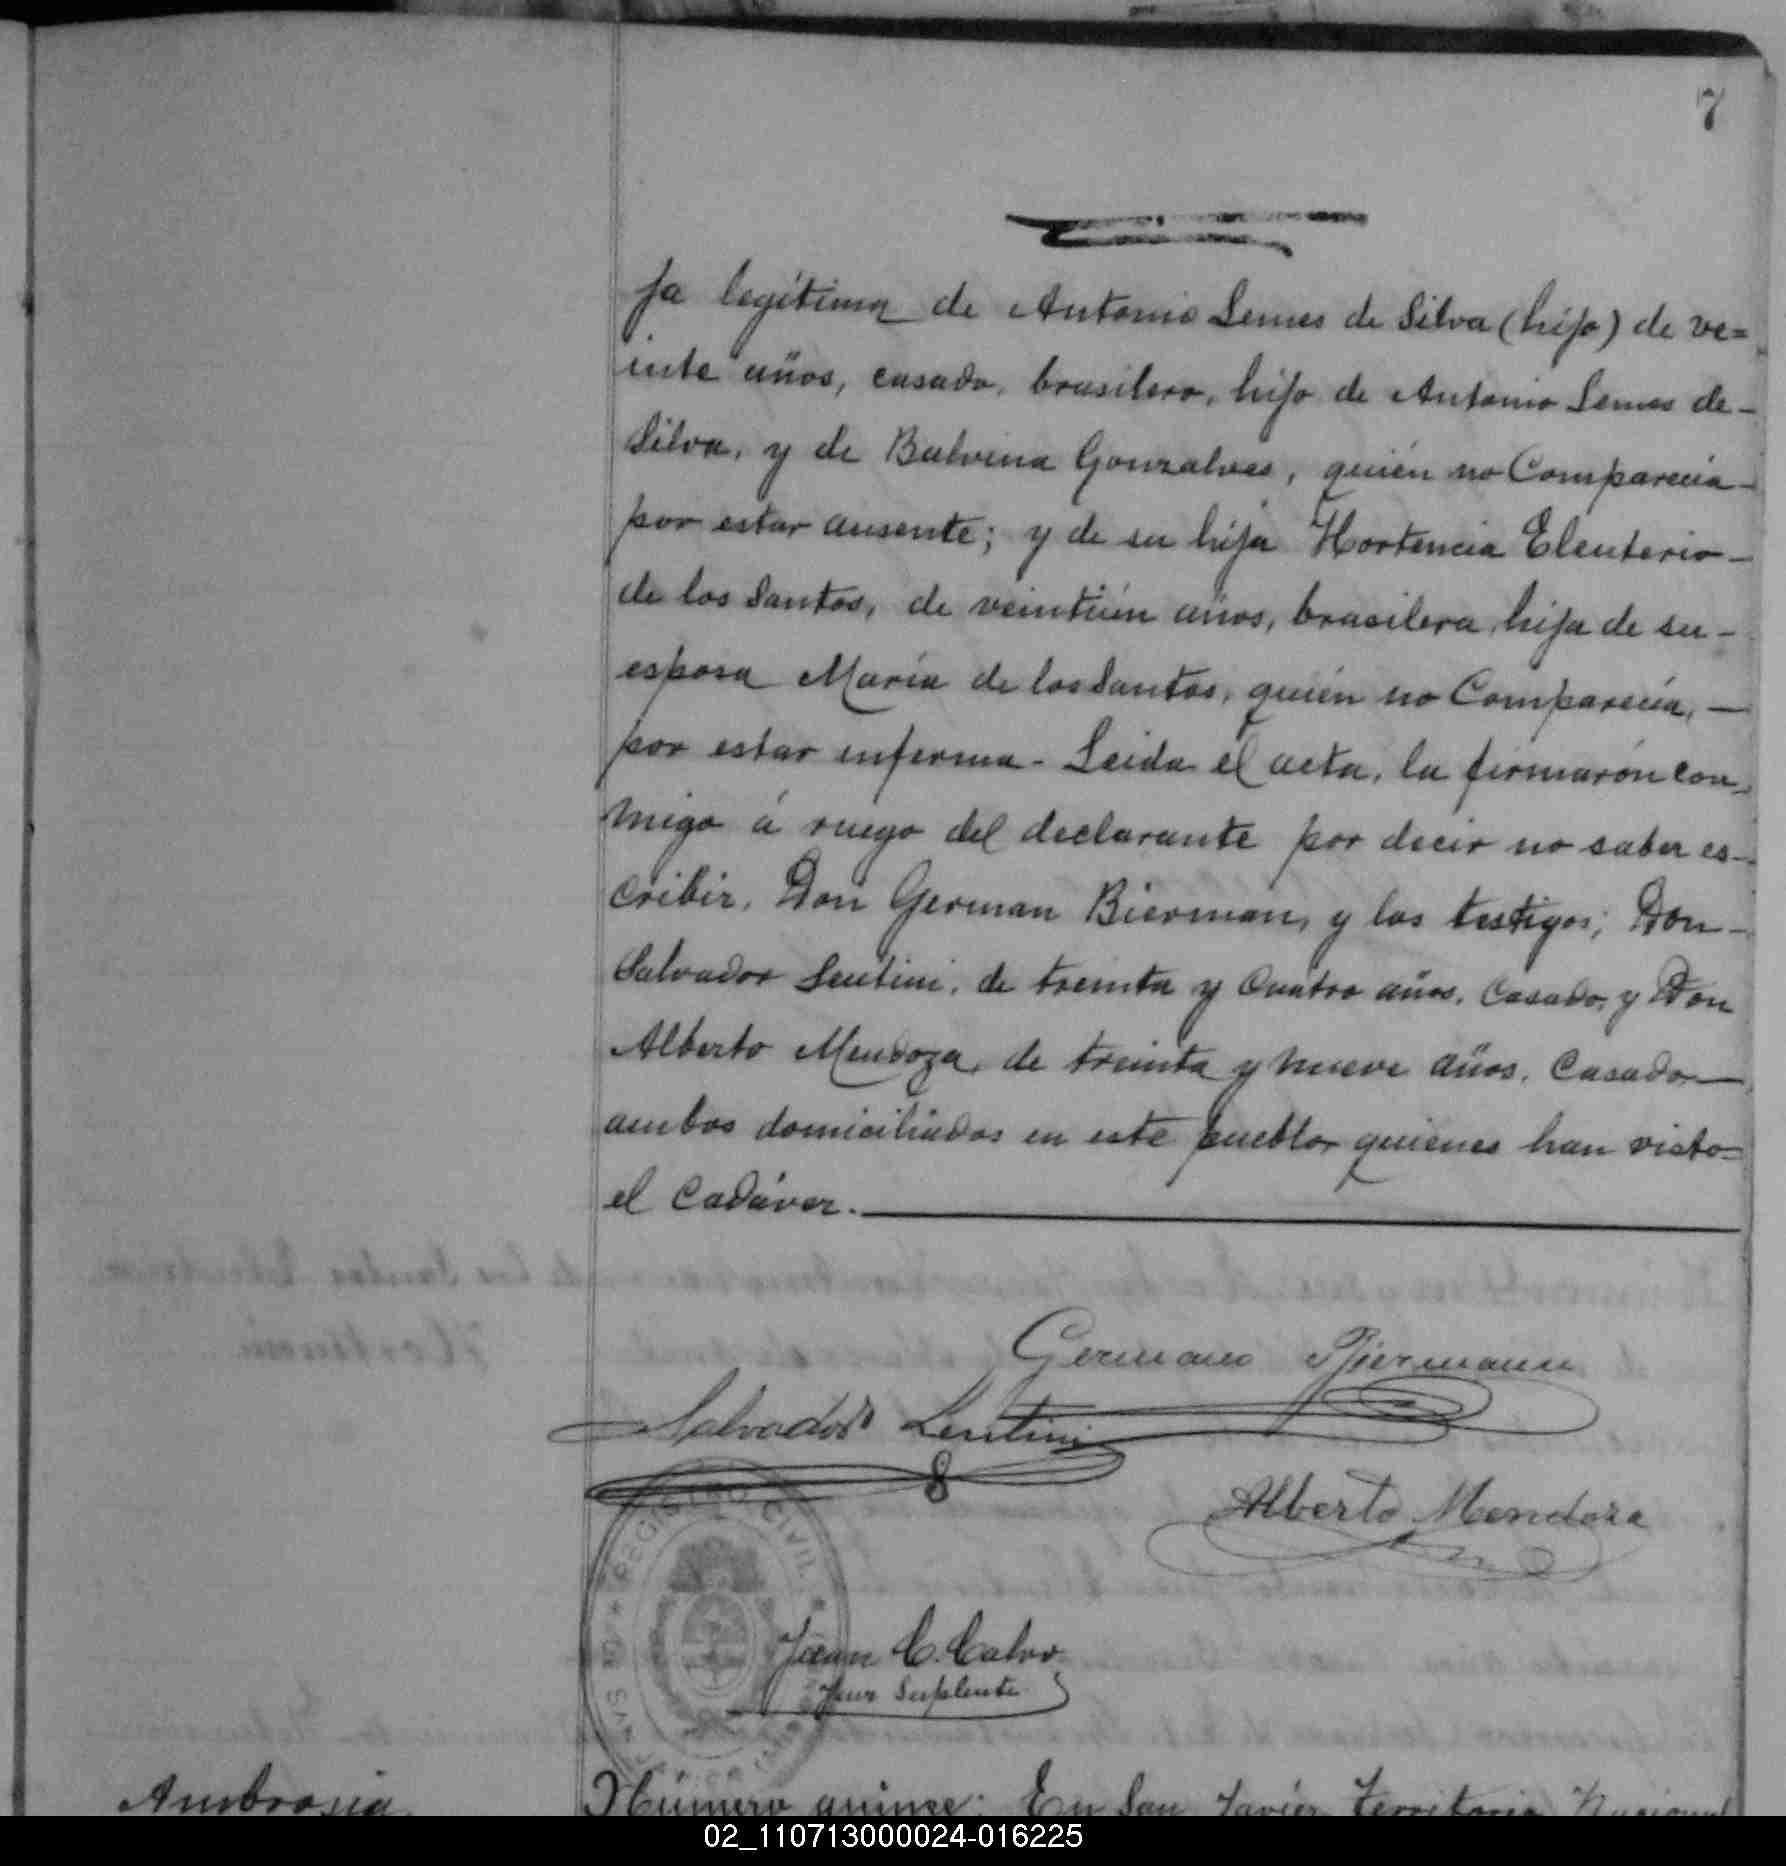 7
ja legítima de Antonio Lemes de Silva (hijo) de ve=
inte años, casado, brasilero, hijo de Antonio Lemes de-
Silva, y de Balvina Gonzalves, quién no Comparecia-
por estar ausente; y de su hija Hortencia Eleuterio-
de los Santos, de veintiún años, brasilera, hija de su-
esposa María de los Santos, quién no Comparecía, —
por estar enferma - Leida el acta, la firmarón con
migo á ruego del declarante por decir no saber es-
cribir, Don German Bierman, y los testigos; Don-
Salvador Lentini, de treinta y cuatro años, Casado, y Don
Alberto Mendoza, de treinta y nueve años, Casado —
ambos domiciliados en este pueblo, quienes han visto=
el Cadáver.
Germano Bjermann
Salvador Lentini
Alberto Mendoza
REGISTRO CIVIL
Juan C. Calvo
Juez Suplente
Ambrosia
Número quince: En San Javier Territorio Nacional
02_110713000024-016225